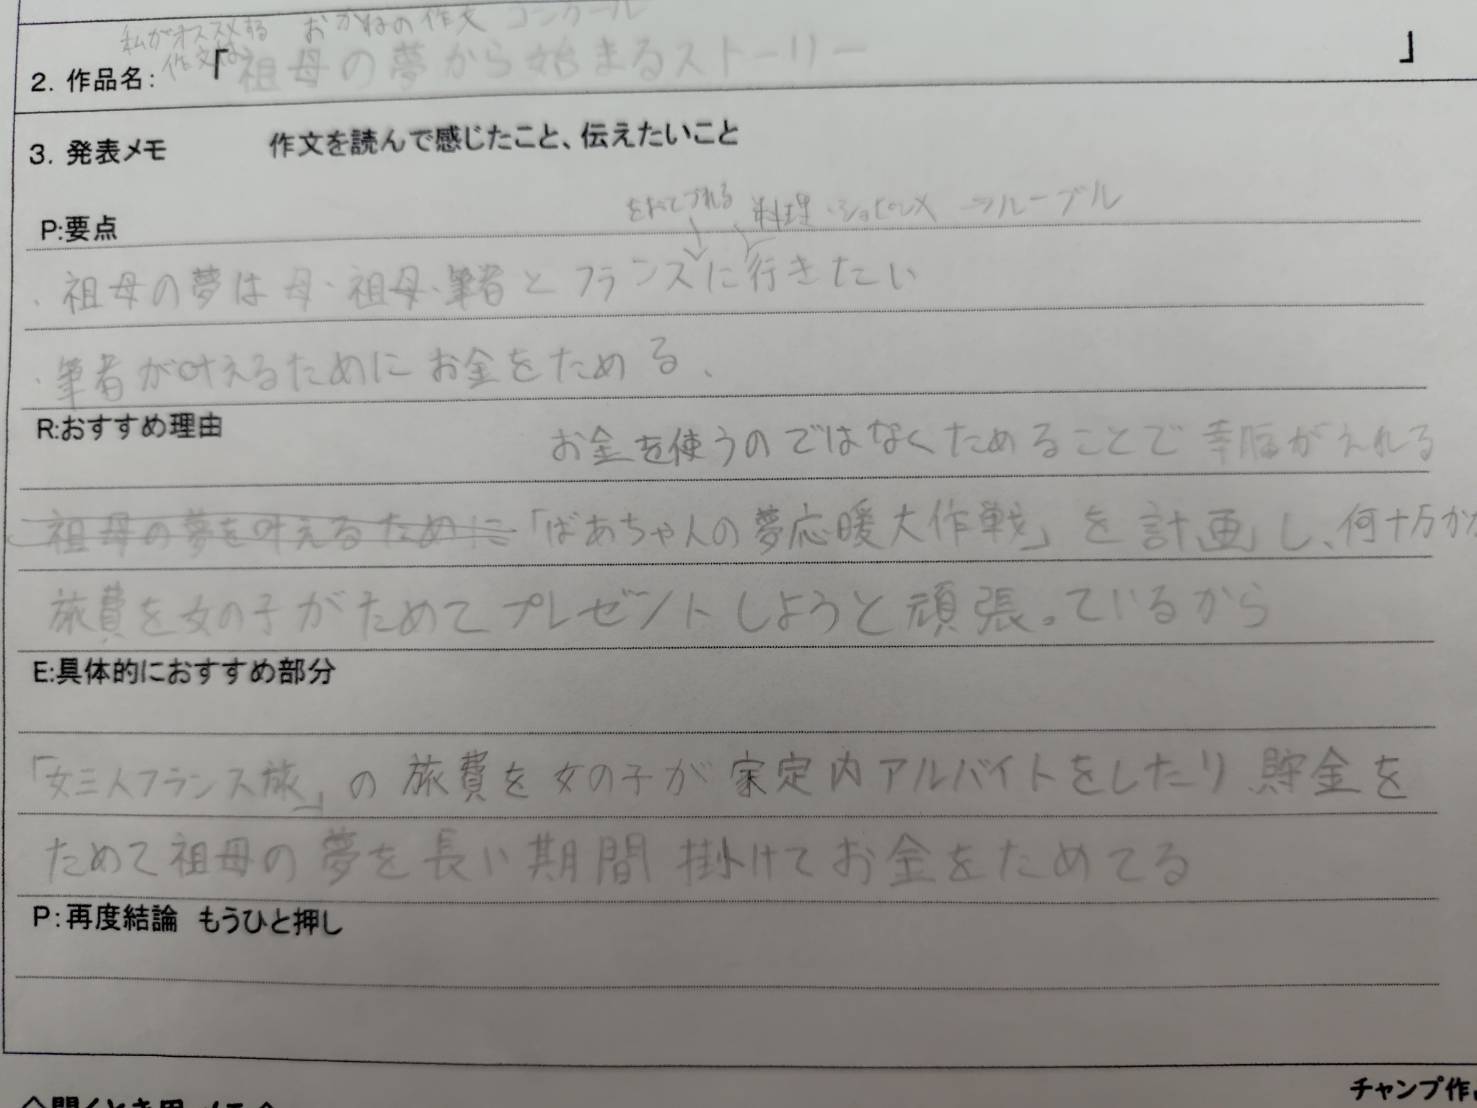 私がオススメする おかねの作文 コンクール
作文は
2. 作品名: 「祖母の夢から始まるストーリー 」
3. 発表メモ 作文を読んで感じたこと、伝えたいこと
をおとづれる 料理・ショッピング ルーブル
P:要点
・祖母の夢は母・祖母・筆者とフランスに行きたい
・筆者が叶えるためにお金をためる、
R:おすすめ理由
お金を使うのではなくためることで幸福がえれる
祖母の夢を叶えるために「ばあちゃんの夢応暖大作戦」を計画し、何十万か
旅費を女の子がためてプレゼントしようと頑張っているから
E:具体的におすすめ部分
「女三人フランス旅」の旅費を女の子が家定内アルバイトをしたり貯金を
ためて祖母の夢を長い期間掛けてお金をためてる
P:再度結論 もうひと押し
チャンプ作